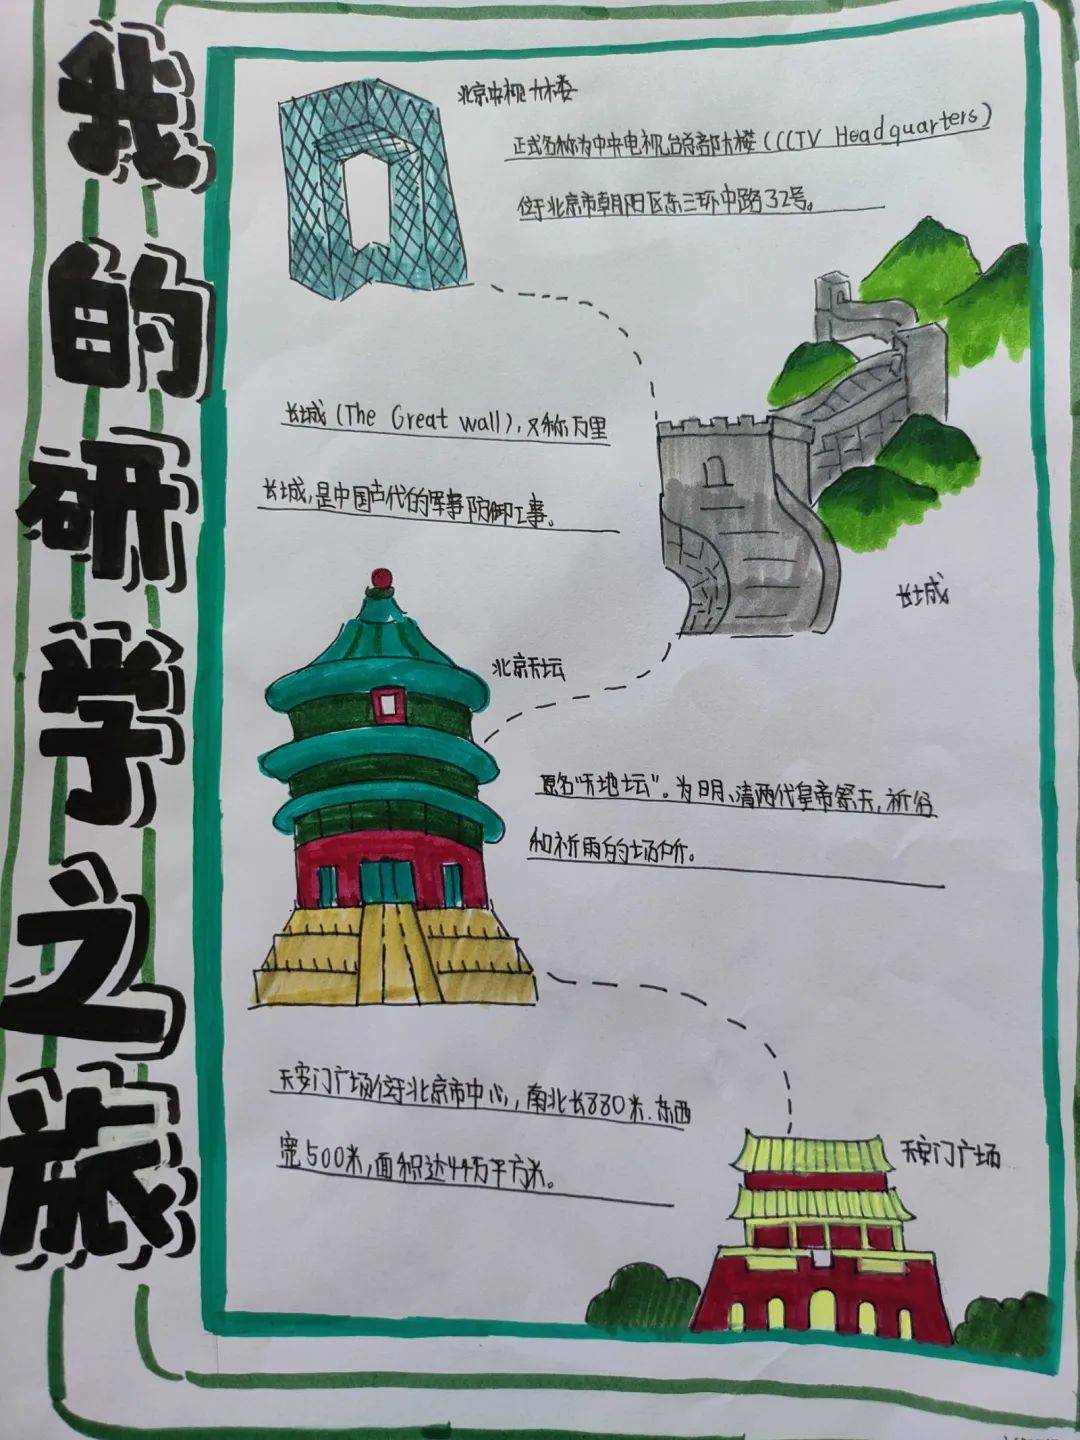 我的研学之旅
北京央视大楼
正式名称为中央电视台总部大楼(CCTV Headquarters)
位于北京市朝阳区东三环中路32号。
长城(The Great wall),又称万里
长城,是中国古代的军事防御工事。
长城
北京天坛
原名“天地坛”。为明、清两代皇帝祭天,祈谷
和祈雨的场所。
天安门广场位于北京市中心,南北长880米.东西
宽500米,面积达44万平方米。
天安门广场